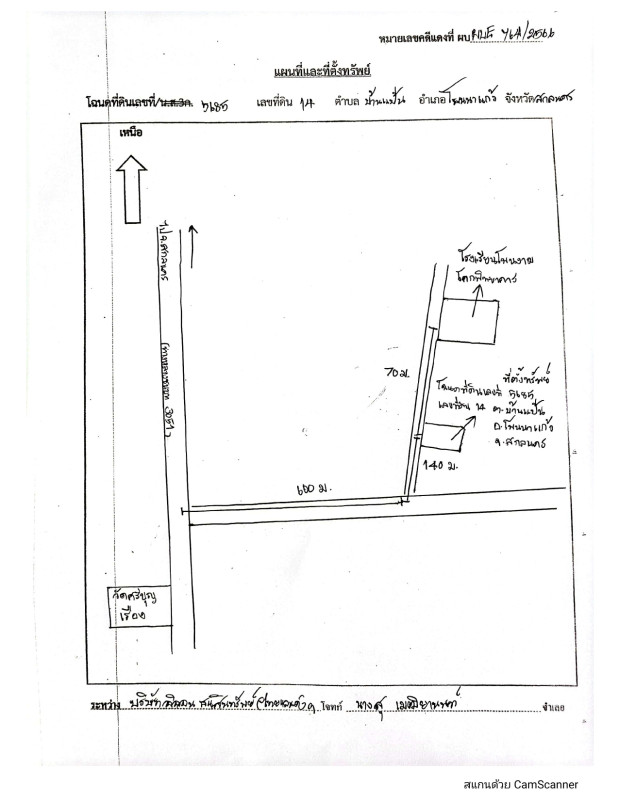 หมายเลขคดีแดงที่ ผบ
แผนที่และที่ตั้งทรัพย์
โฉนดที่ดินเลขที่/น.ส.3ก. 5685 เลขที่ดิน 14 ตำบล บ้านแป้น อำเภอ โพนนาแก้ว จังหวัด สกลนคร
เหนือ
ไป จ.สกลนคร
โรงเรียนโพนงาม
โคกพิทยาคาร
70 ม.
ที่ตั้งทรัพย์
โฉนดที่ดินเลขที่ 5685
เลขที่ดิน 14 ต.บ้านแป้น
อ.โพนนาแก้ว
จ.สกลนคร
140 ม.
600 ม.
วัดศรีบุญ
เรือง
ระหว่าง บริษัท โจทก์ จำเลย
สแกนด้วย CamScanner